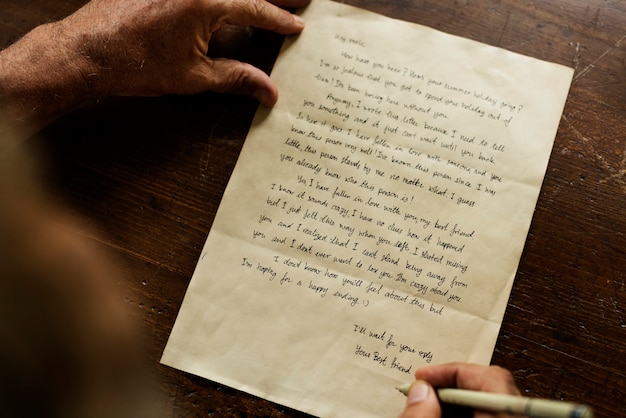 Hey dude,
How have you been? How's your summer holiday going?
I'm so jealous that you got to spend your holiday out of
town! It's been boring here without you.
Anyway, I wrote this letter because I need to tell
you something and it just can't wait until you back.
So here it goes, I have fallen in love with someone and you
know this person very well! I've known this person since I was
little, this person stands by me no matter what. I guess
you already know who this person is!
Yes, I have fallen in love with you, my best friend
I know it sounds crazy, I have no clues how it happened
but I just felt this way when you left. I started missing
you and I realized that I can't stand being away from
you and I don't ever want to lose you. I'm crazy about you
I don't know how you'll feel about this but
I'm hoping for a happy ending :)
I'll wait for your reply
Your Best friend